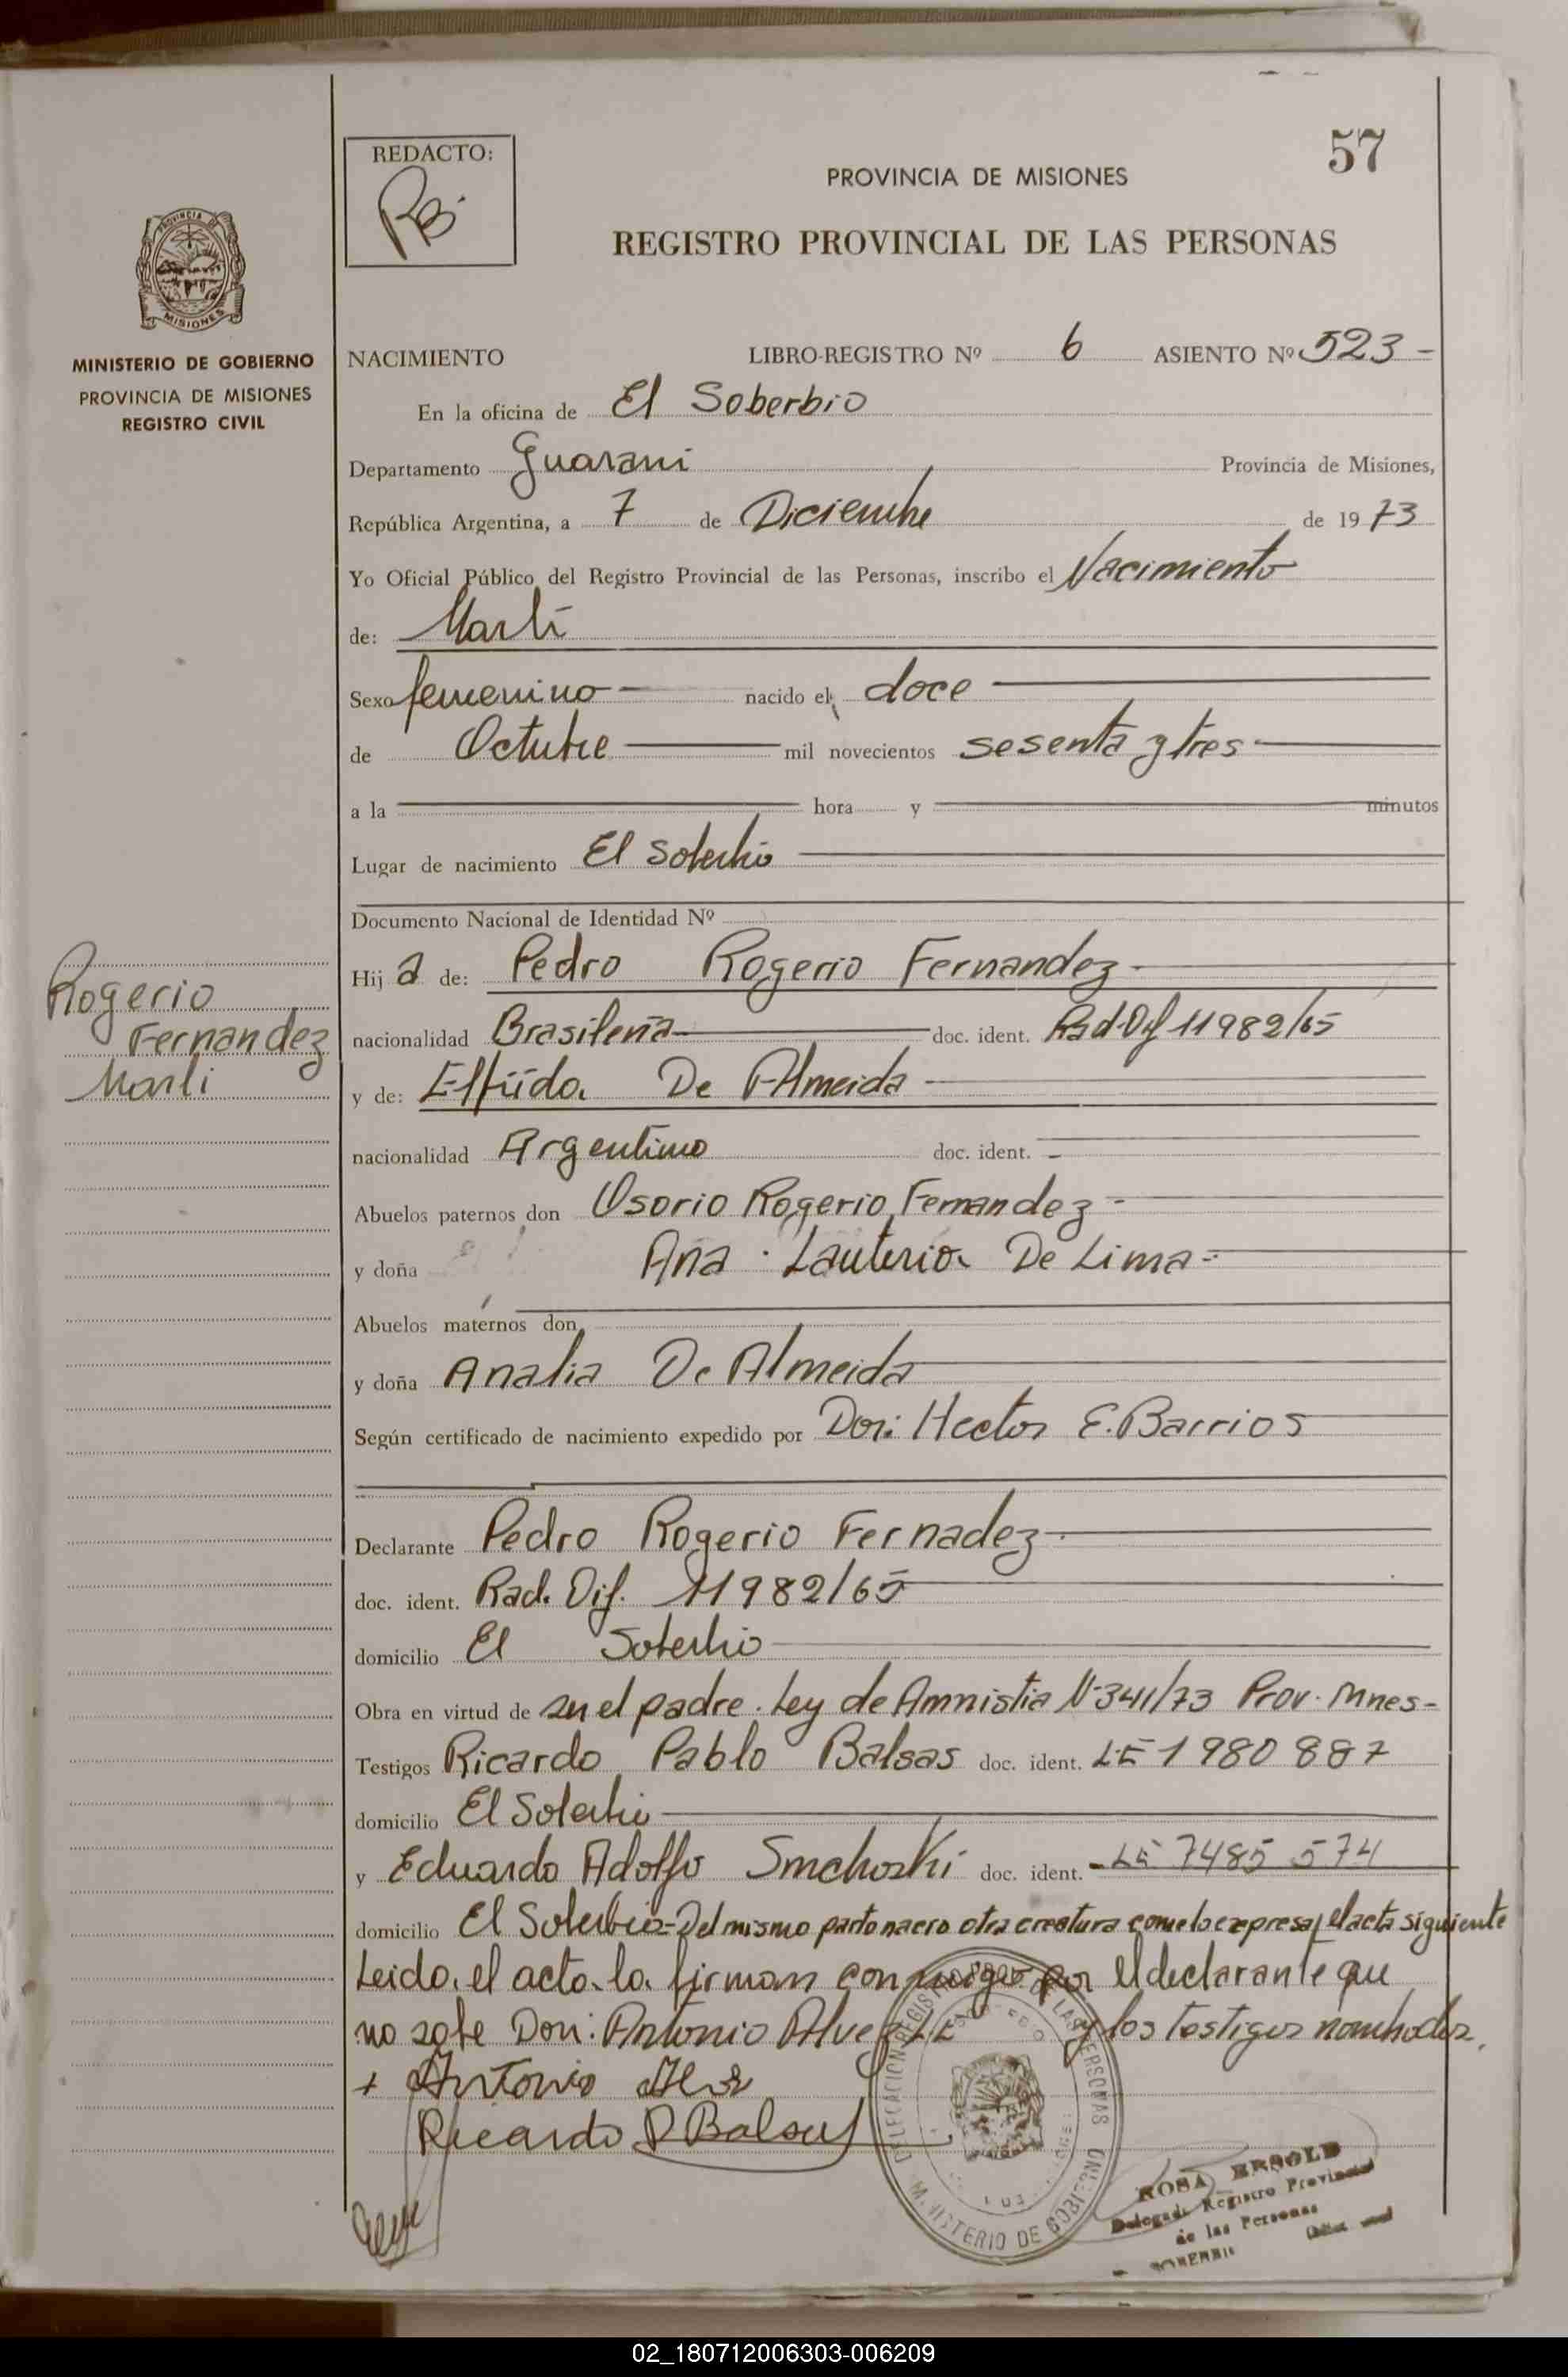 57
REDACTO:
RB.
PROVINCIA DE MISIONES
REGISTRO PROVINCIAL DE LAS PERSONAS
PROVINCIA DE
MISIONES
MINISTERIO DE GOBIERNO
PROVINCIA DE MISIONES
REGISTRO CIVIL
NACIMIENTO LIBRO-REGISTRO Nº 6 ASIENTO Nº 523-
En la oficina de El Soberbio
Departamento Guarani Provincia de Misiones,
República Argentina, a 7 de Diciembre de 1973
Yo Oficial Público del Registro Provincial de las Personas, inscribo el Nacimiento
de: Marli
Sexo femenino nacido el doce
de Octubre mil novecientos sesenta y tres
a la hora y minutos
Lugar de nacimiento El Soberbio
Documento Nacional de Identidad Nº
Hija de: Pedro Rogerio Fernandez
Rogerio
Fernandez
Marli
nacionalidad Brasileña doc. ident. Rad. Dif 11982/65
y de: De Almeida
nacionalidad Argentino doc. ident. -
Abuelos paternos don Osorio Rogerio Fernandez
y doña Ana Lauteria De Lima
Abuelos maternos don
y doña Analia De Almeida
Según certificado de nacimiento expedido por Don: Hector E. Barrios
Declarante Pedro Rogerio Fernadez
doc. ident. Rad. Dif. 11982/65
domicilio El Soberbio
Obra en virtud de ser el padre. Ley de Amnistia Nº341/73 Prov. Mnes-
Testigos Ricardo Pablo Balsas doc. ident. LE 1980887
domicilio El Soberbio
y Eduardo Adolfo doc. ident. LE 7485574
domicilio El Soberbio-Del mismo parto nacio otra creatura como lo expresa el acta siguiente
Leida el acta la firman conmigo por el declarante que
no sabe Don: Antonio Alvez LE y los testigos nombrados.
+ Antonio
Ricardo P Balsas
DELEGACION REGISTRO PROV. DE LAS PERSONAS
MINISTERIO DE GOBIERNO
ROSA
Delegada Registro Provincial
de las Personas
SOBERBIO
02_180712006303-006209